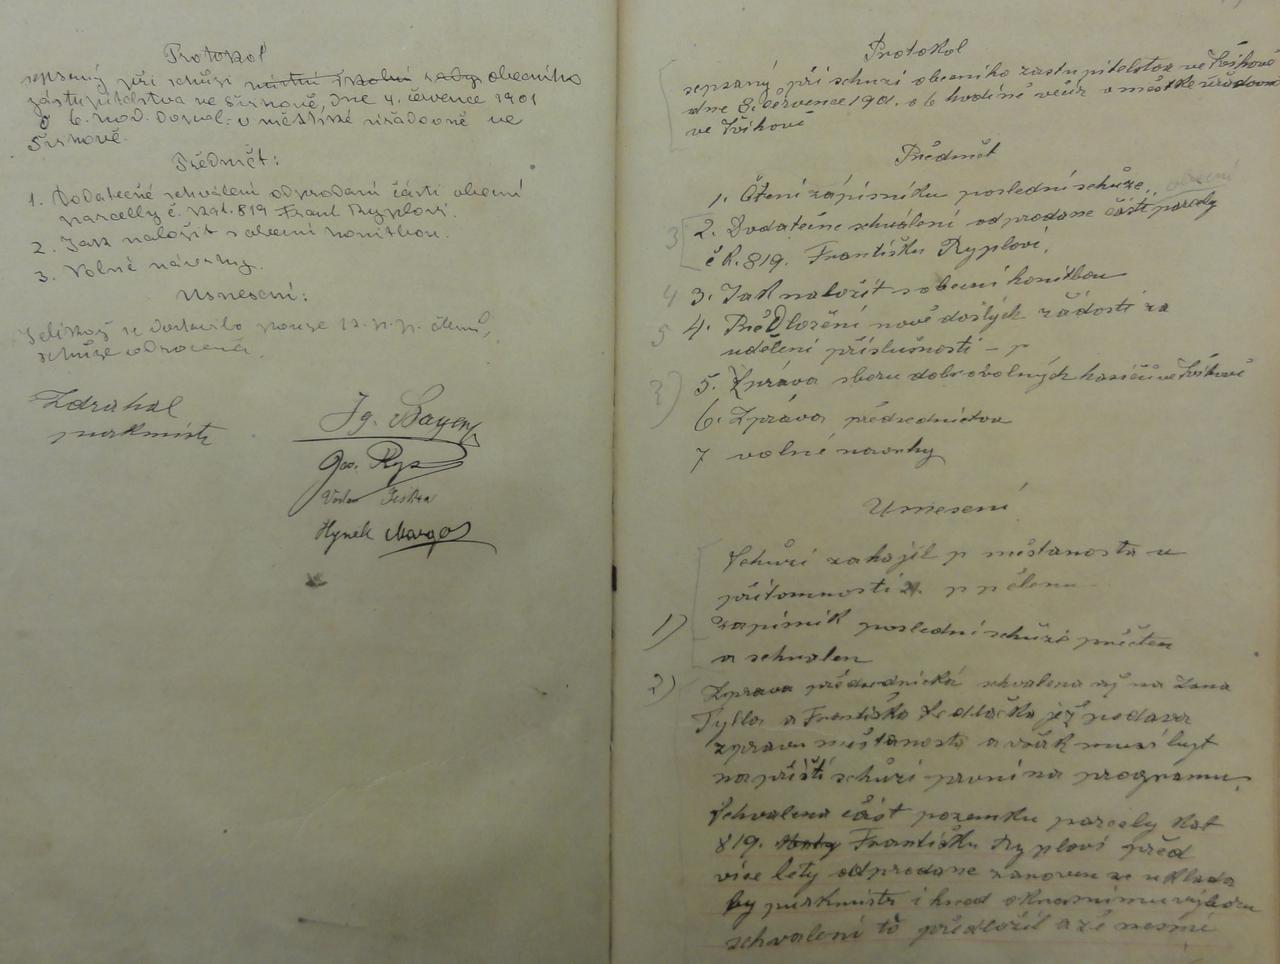 Protokol
sepsaný při schůzi místní školní rady obecního
zástupitelstva ve Svinově, dne 4. července 1901
o 6. hod. v městské úřadovně ve
Svinově.
Předmět:
1. Dodatečné schválení odprodání části obecní
parcelly č. kat. 819 Frant. Ryplovi.
2. Jak naložit s obecní honitbou.
3. Volné návrhy.
Usnesení:
Jelikož se dostavilo pouze 12 p. p. členů,
schůze odročena.
Zdráhal
purkmistr
Ig. Bayer
Rys
Hynek
Protokol
sepsaný při schůzi obecního zastupitelstva ve
dne 8. července 1901. o 6 hodině večer v městské úřadovně
ve
Předmět
1. Čtení zápisníku poslední schůze. obecní
3 2. Dodatečné schválení odprodané části parcely
č k. 819. Františku Ryplovi.
4 3. Jak naložit s obecní honitbou
5 4. Předložení nově došlých žádostí za
udělení příslušnosti – p
2) 5. Zpráva sboru dobrovolných hasičů ve
6. Zpráva předsednictva
7 volné navrhy
Usnesení
Schůzi zahájil p města­nosta u
přítomnosti 21. p p členu
1) zapisnik poslední schůze přečten
a schvalen
2) Zprava předsednická schvalena až na Jana
Tylla a Františka Sedlačka jež podava
zpravu městanosta a však musí byt
na příští schůzi první na programu.
Schvalena část pozemku parcely kat
819. Františku Ryplovi před
více lety odprodane zanoven se uklada
by purkmistr i hned
schvalení to předložil a že nesmí